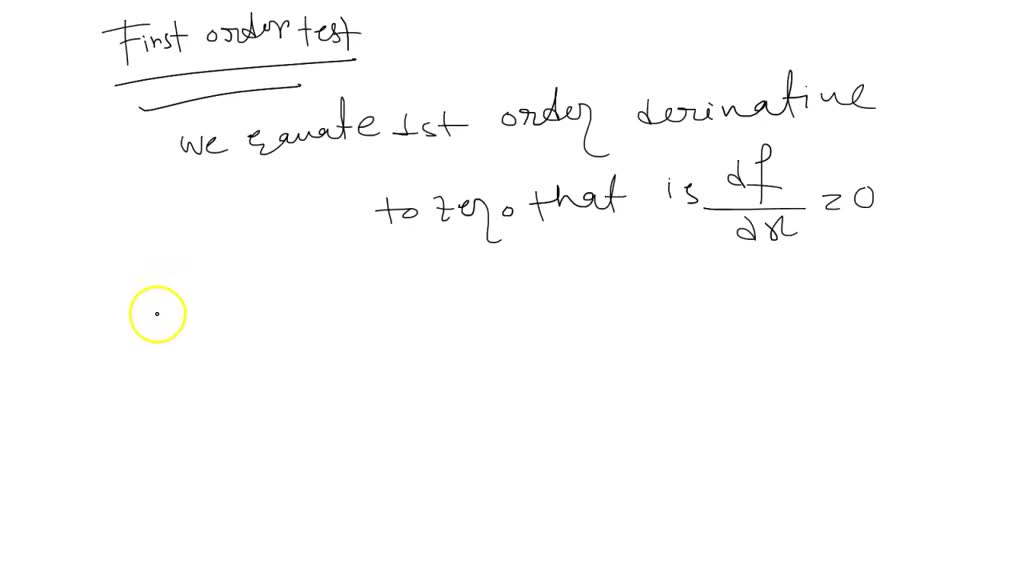 First order test
we equate 1st order derivative
to zero that is df/dx = 0